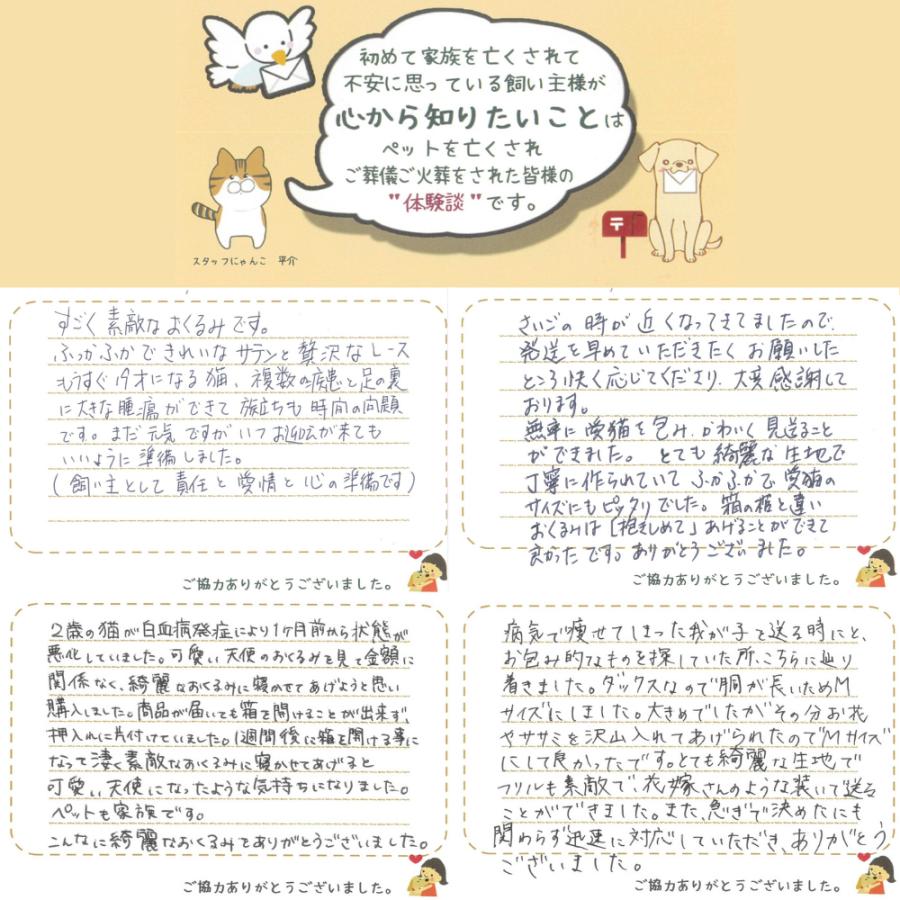 初めて家族を亡くされて
不安に思っている飼い主様が
心から知りたいことは
ペットを亡くされ
ご葬儀ご火葬をされた皆様の
"体験談"です。
スタッフにゃんこ 平介
すごく素敵なおくるみです。
ふっかふかできれいなサテンと贅沢なレース
もうすぐ19才になる猫、複数の疾患と足の裏
に大きな腫瘍ができて旅立ちも時間の問題
です。まだ元気ですがいつお迎えが来ても
いいように準備しました。
(飼い主として責任と愛情と心の準備です)
ご協力ありがとうございました。
さいごの時が近くなってきてましたので、
発送を早めていただきたくお願いした
ところ快く応じてくださり、大変感謝して
おります。
無事に愛猫を包み、かわいく見送ること
ができました。とても綺麗な生地で
丁寧に作られていてふかふかで愛猫の
サイズにもピッタリでした。箱の棺と違い
おくるみは「抱きしめて」あげることができて
良かったです。ありがとうございました。
ご協力ありがとうございました。
2歳の猫が白血病発症により1ヶ月前から状態が
悪化していました。可愛い天使のおくるみを見て金額に
関係なく、綺麗なおくるみに寝かせてあげようと思い
購入しました。商品が届いても箱を開けることが出来ず、
押入れに片付けていました。1週間後に箱を開ける事に
なって凄く素敵なおくるみに寝かせてあげると
可愛い天使になったような気持ちになりました。
ペットも家族です。
こんなに綺麗なおくるみでありがとうございました。
ご協力ありがとうございました。
病気で痩せてしまった我が子を送る時にと、
お包み的なものを探していた所、こちらに辿り
着きました。ダックスなので胴が長いためM
サイズにしました。大きめでしたがその分お花
やササミを沢山入れてあげられたのでMサイズ
にして良かったです。とても綺麗な生地で
フリルも素敵で、花嫁さんのような装いで送る
ことができました。また、急ぎで決めたにも
関わらず迅速に対応していただき、ありがとう
ございました。
ご協力ありがとうございました。